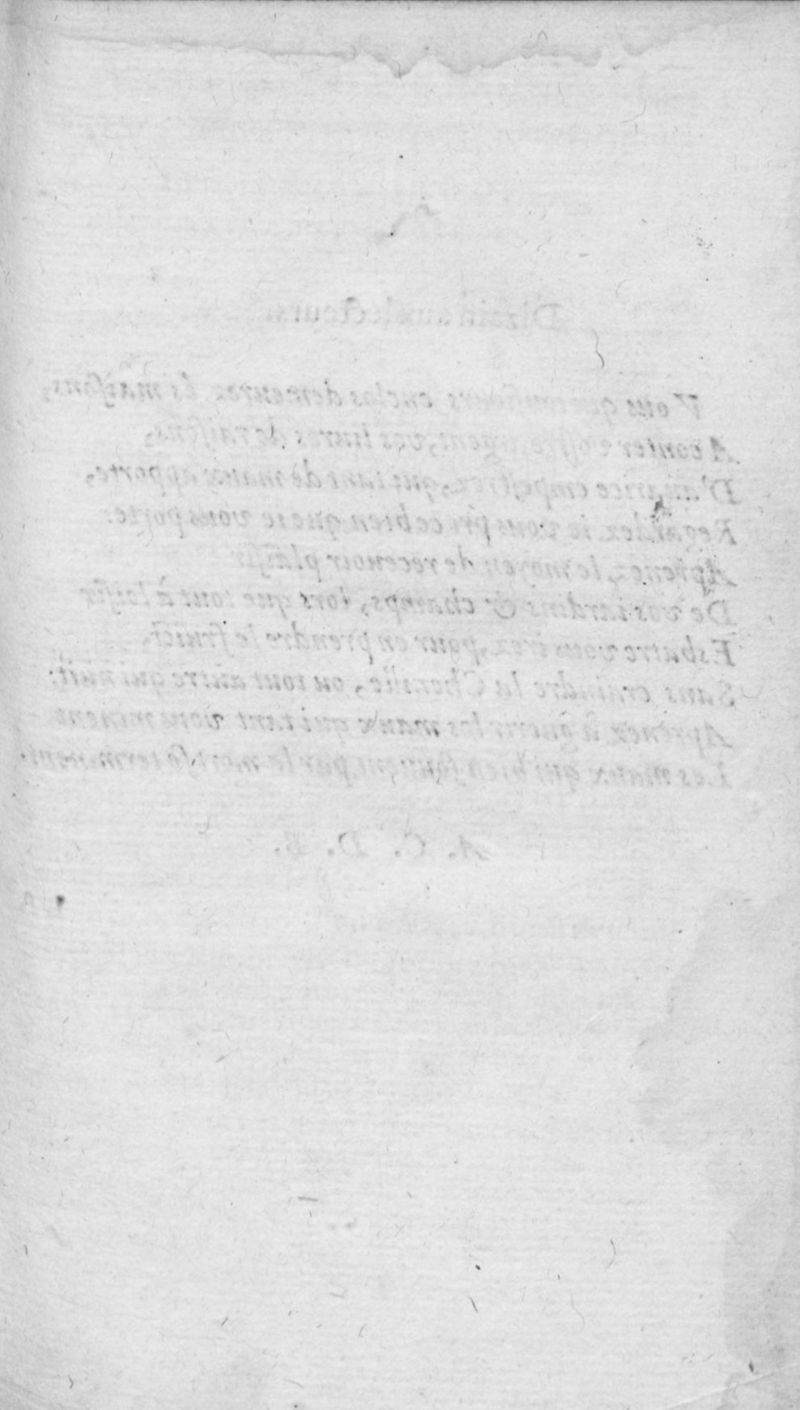 Dizain aux lecteurs.
Vous que tousiours enclos demeurez
A conter vostre argent, vos liures de raisons,
D'auarice empestrez, qui tant de maux apporte,
Regardez ie vous pri ce bien que ie vous porte:
Aprenez le moyen de receuoir plaisir
De vos iardins & champs, lors que tout à loisir
Esbatre vous irez, pour en prendre le fruict,
Sans craindre la Chenille, ou tout autre qui nuit:
Aprenez à guerir les maux qui tant
Les maux qui bien souuent par la mort se terminent.
A. C. D. B.